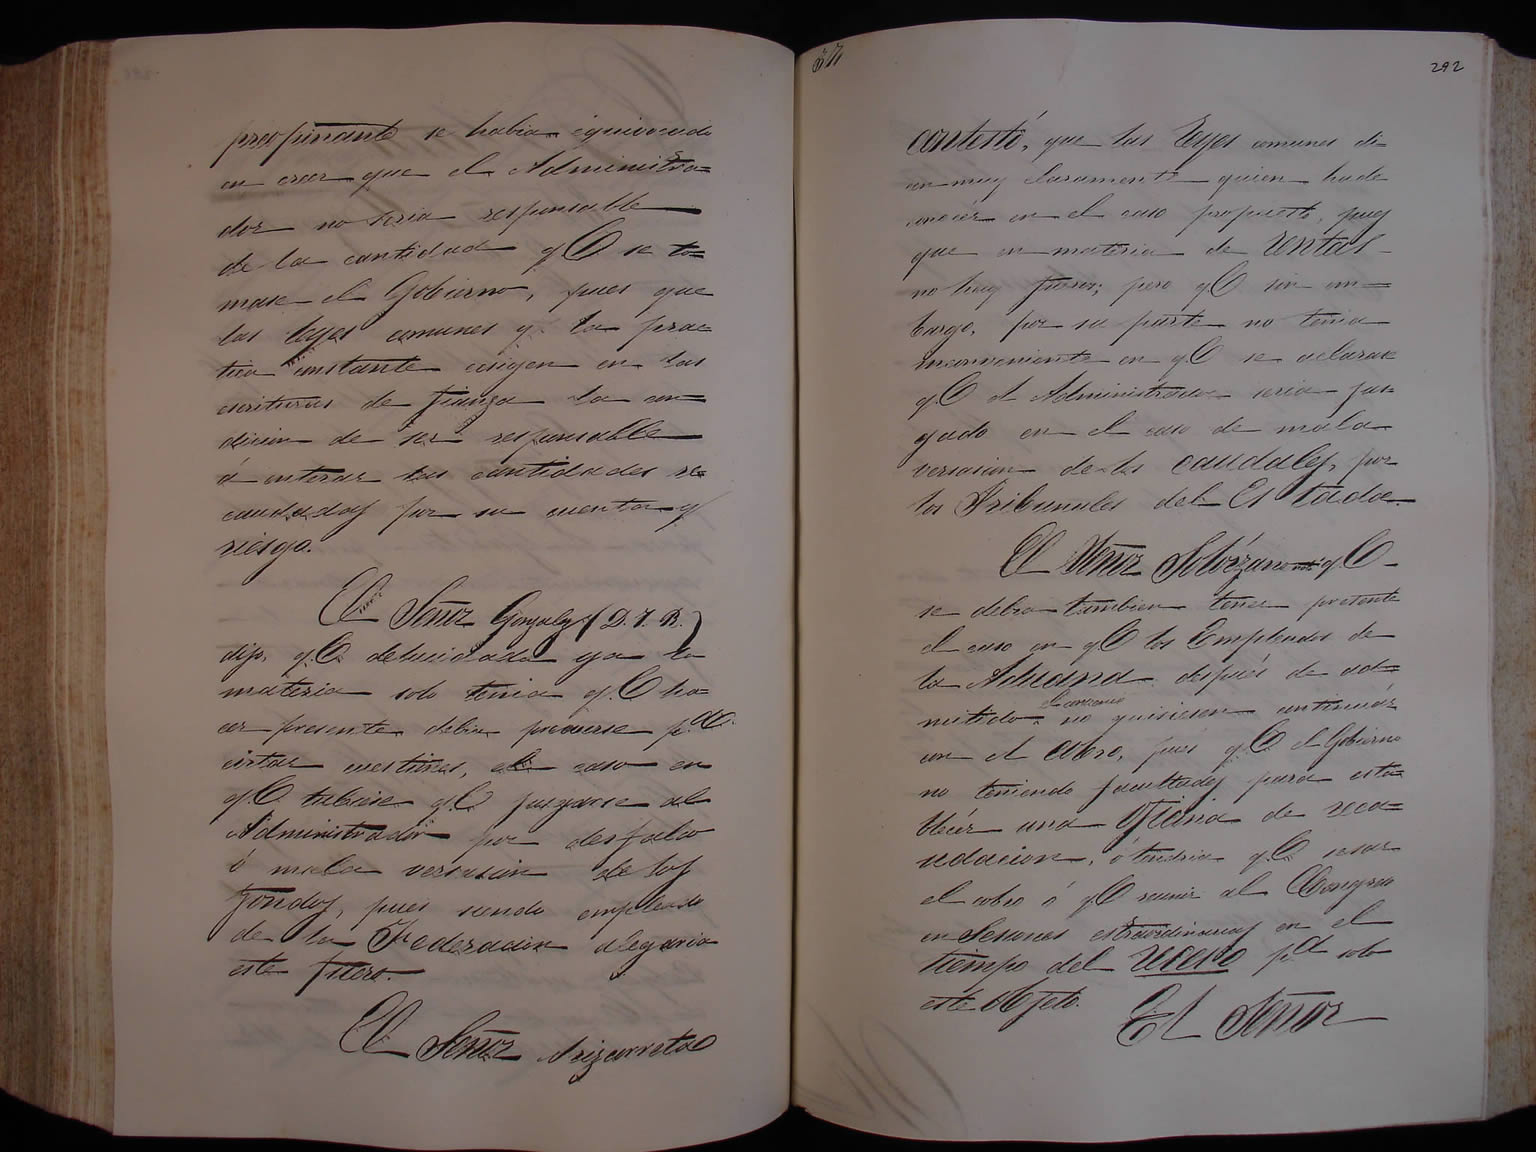 preopinante se habia equivocado
en creer que el Administra=
dor no seria responsable
de la cantidad q.e se to=
mase el Gobierno, pues que
las leyes comunes y la prac=
tica constante exigen en las
escrituras de fianza la con=
dicion de ser responsable
á enterar las cantidades re=
caudadas por su cuenta y
riesgo.
El Señor Gonzalez (D. J. R.)
dijo, q.e dilucidada ya la
materia solo tenia q.e ha=
cer presente debia preverse p.a
evitar cuestiones, el caso en
q.e tubiese q.e juzgarse al
Administrador por desfalco
ó mala versacion de los
fondos, pues siendo empleado
de la Federacion alegaria
este fuero.
El Señor Arizcorreta
292
contestó, que las Leyes comunes di=
cen muy claramente quien ha de
conocer en el caso propuesto, pues
que en materia de rentas
no hay fueros; pero q.e sin em=
bargo, por su parte no tenia
inconveniente en q.e se aclarase
q.e el Administrador seria juz=
gado en el caso de mala
versacion de los caudales, por
los Tribunales del Estado.
El Señor Solórzano q.e
se debia tambien tener presente
el caso en q.e los Empleados de
la Aduana despues de ad=
mitido el convenio no quisiesen continuar
con el cobro, pues q.e el Gobierno
no teniendo facultades para esta=
blecer una Oficina de reca=
udacion, ó tendria q.e cesar
el cobro ó q.e reunir al Congreso
en Sesiones estraordinarias en el
tiempo del receso p.a solo
este objeto. El Señor